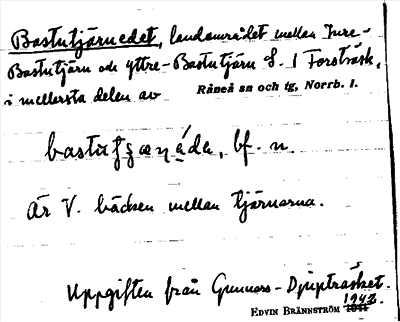 Bastutjärnedet, landområdet mellan Inre-
Bastutjärn och Yttre-Bastutjärn S. i Forsträsk,
i mellersta delen av Råneå sn och tg, Norrb. l.
bastu̇tjæṇáde, bf. n.
är V. bäcken mellan tjärnarna.
Uppgiften från Gunnars-Djupträsket.
EDVIN BRÄNNSTRÖM 1942.